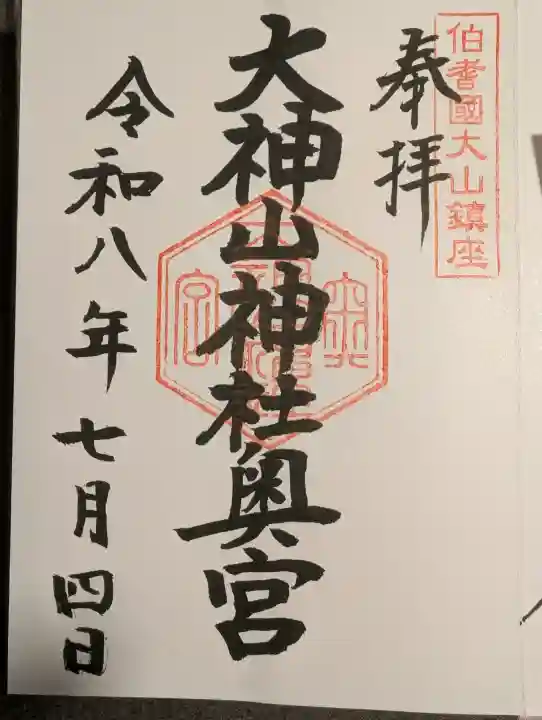 伯耆國大山鎮座
奉拝
大神山神社奥宮
令和八年七月四日